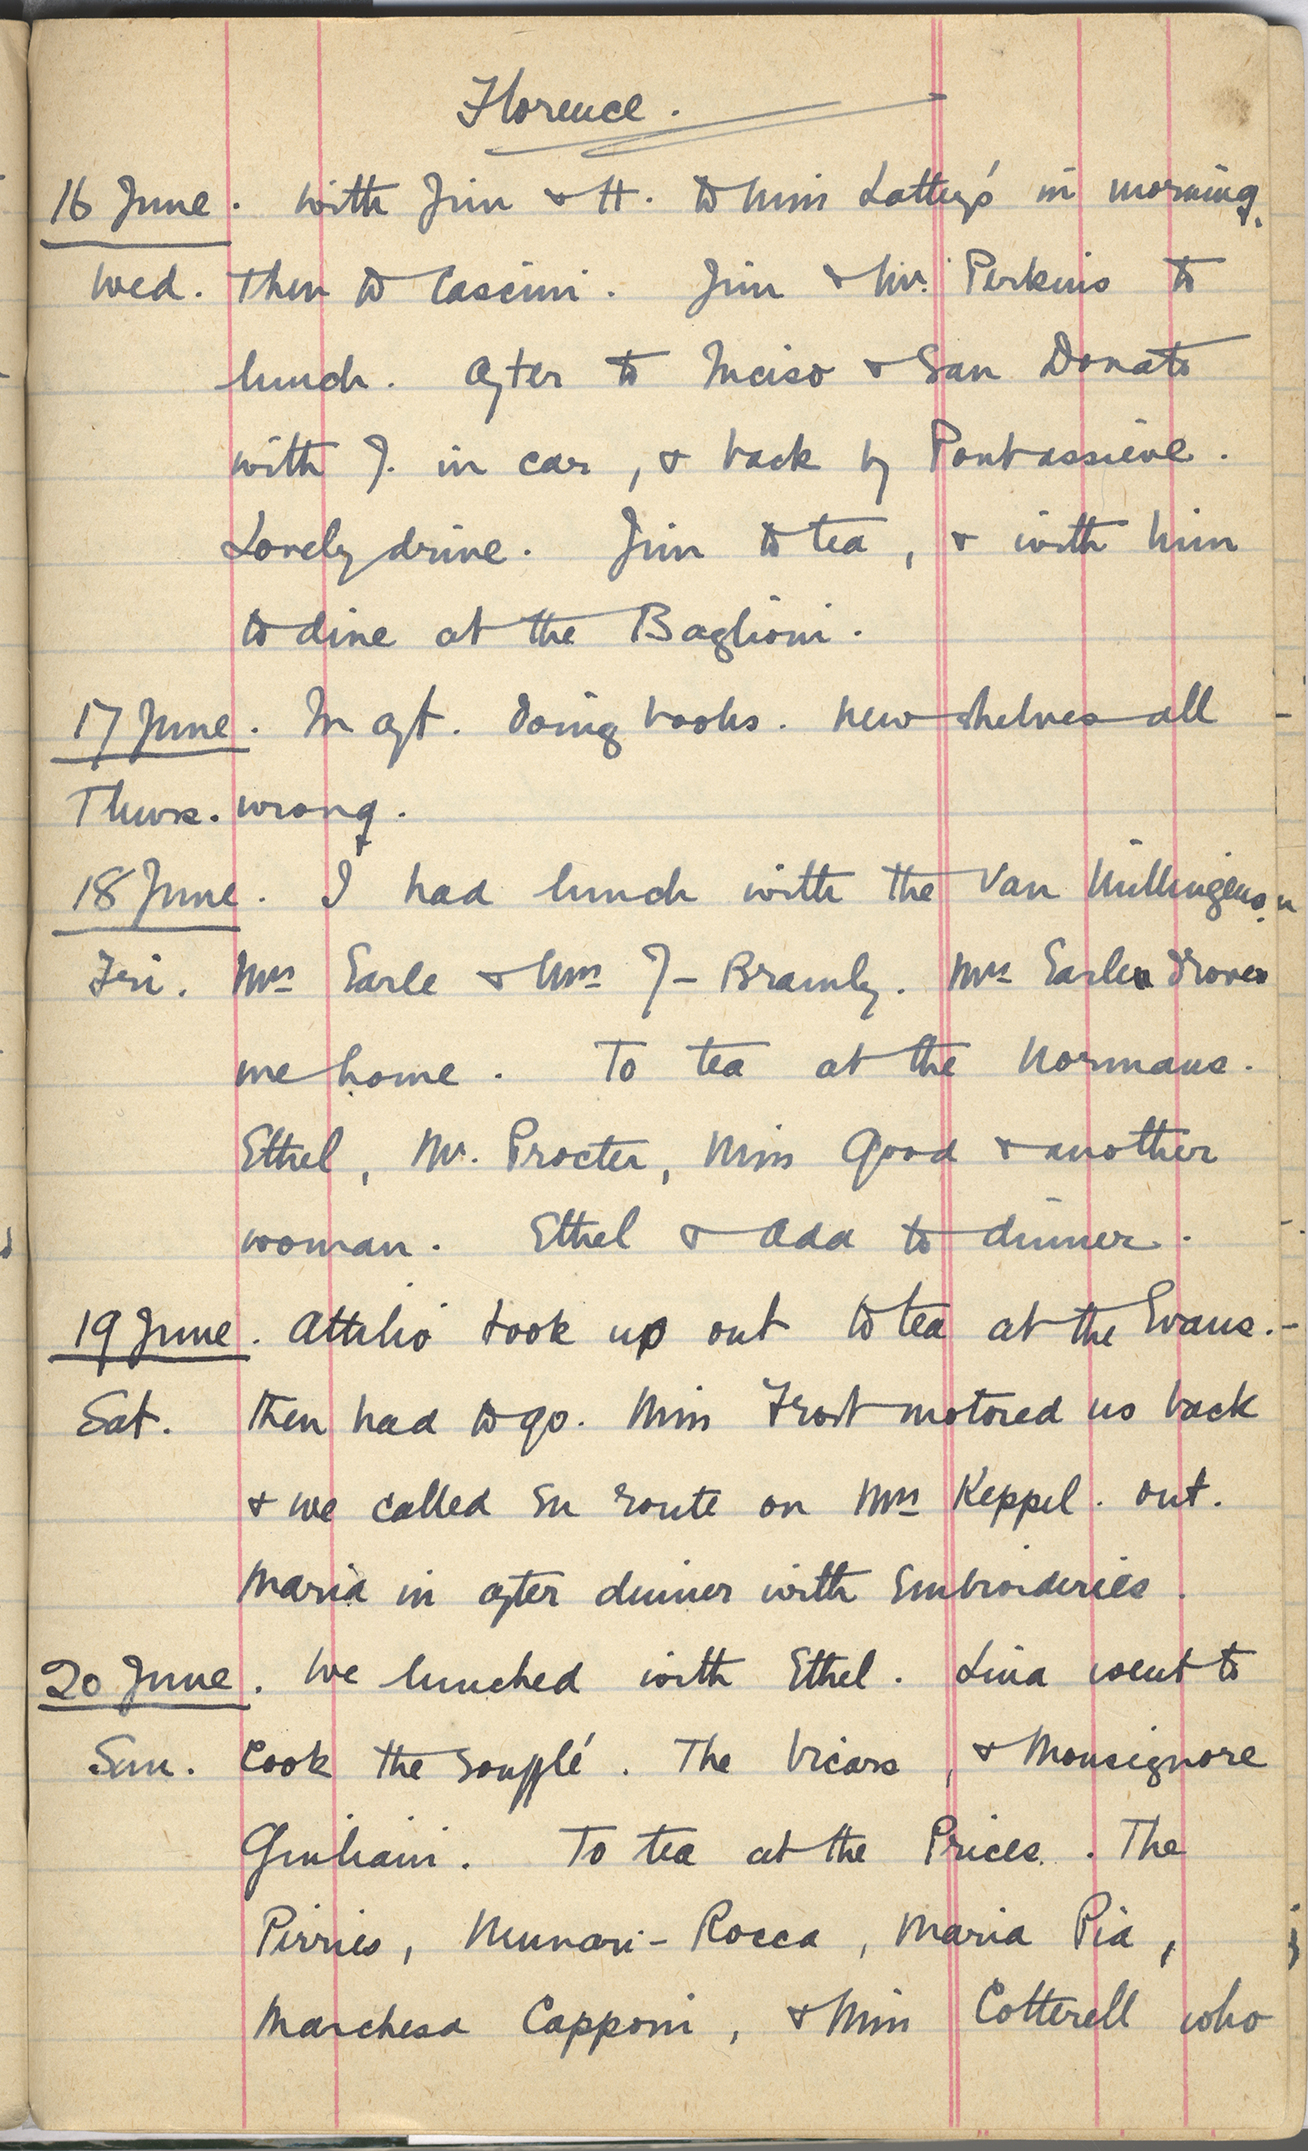 Florence.
16 June. With Jim & H. to Miss Lattey's in morning.
Wed. Then to Cascini. Jim & Mr. Perkins to
lunch. After to Inciso & San Donato
with J. in car, & back by Pontassieve.
Lovely drive. Jim to tea, & with him
to dine at the Baglioni.
17 June. In aft. doing books. New shelves all
Thurs. wrong.
18 June. I had lunch with the Van Millingens.
Fri. Mrs Earle & Mrs J-Bramly. Mrs Earle drove
me home. To tea at the Normans.
Ethel, Mr. Procter, Miss Good & another
woman. Ethel & Ada to dinner.
19 June. Attilio took up out to tea at the Evans.
Sat. Then had to go. Miss Frost motored us back
& we called en route on Mrs Keppel. Out.
Maria in after dinner with embroideries.
20 June. We lunched with Ethel. Lina went to
Sun. cook the soufflé. The Vicars, & Monsignore
Giuliani. To tea at the Prices. The
Pirries, Munari-Rocca, Maria Pia,
Marchesa Capponi, & Miss Cotterell who